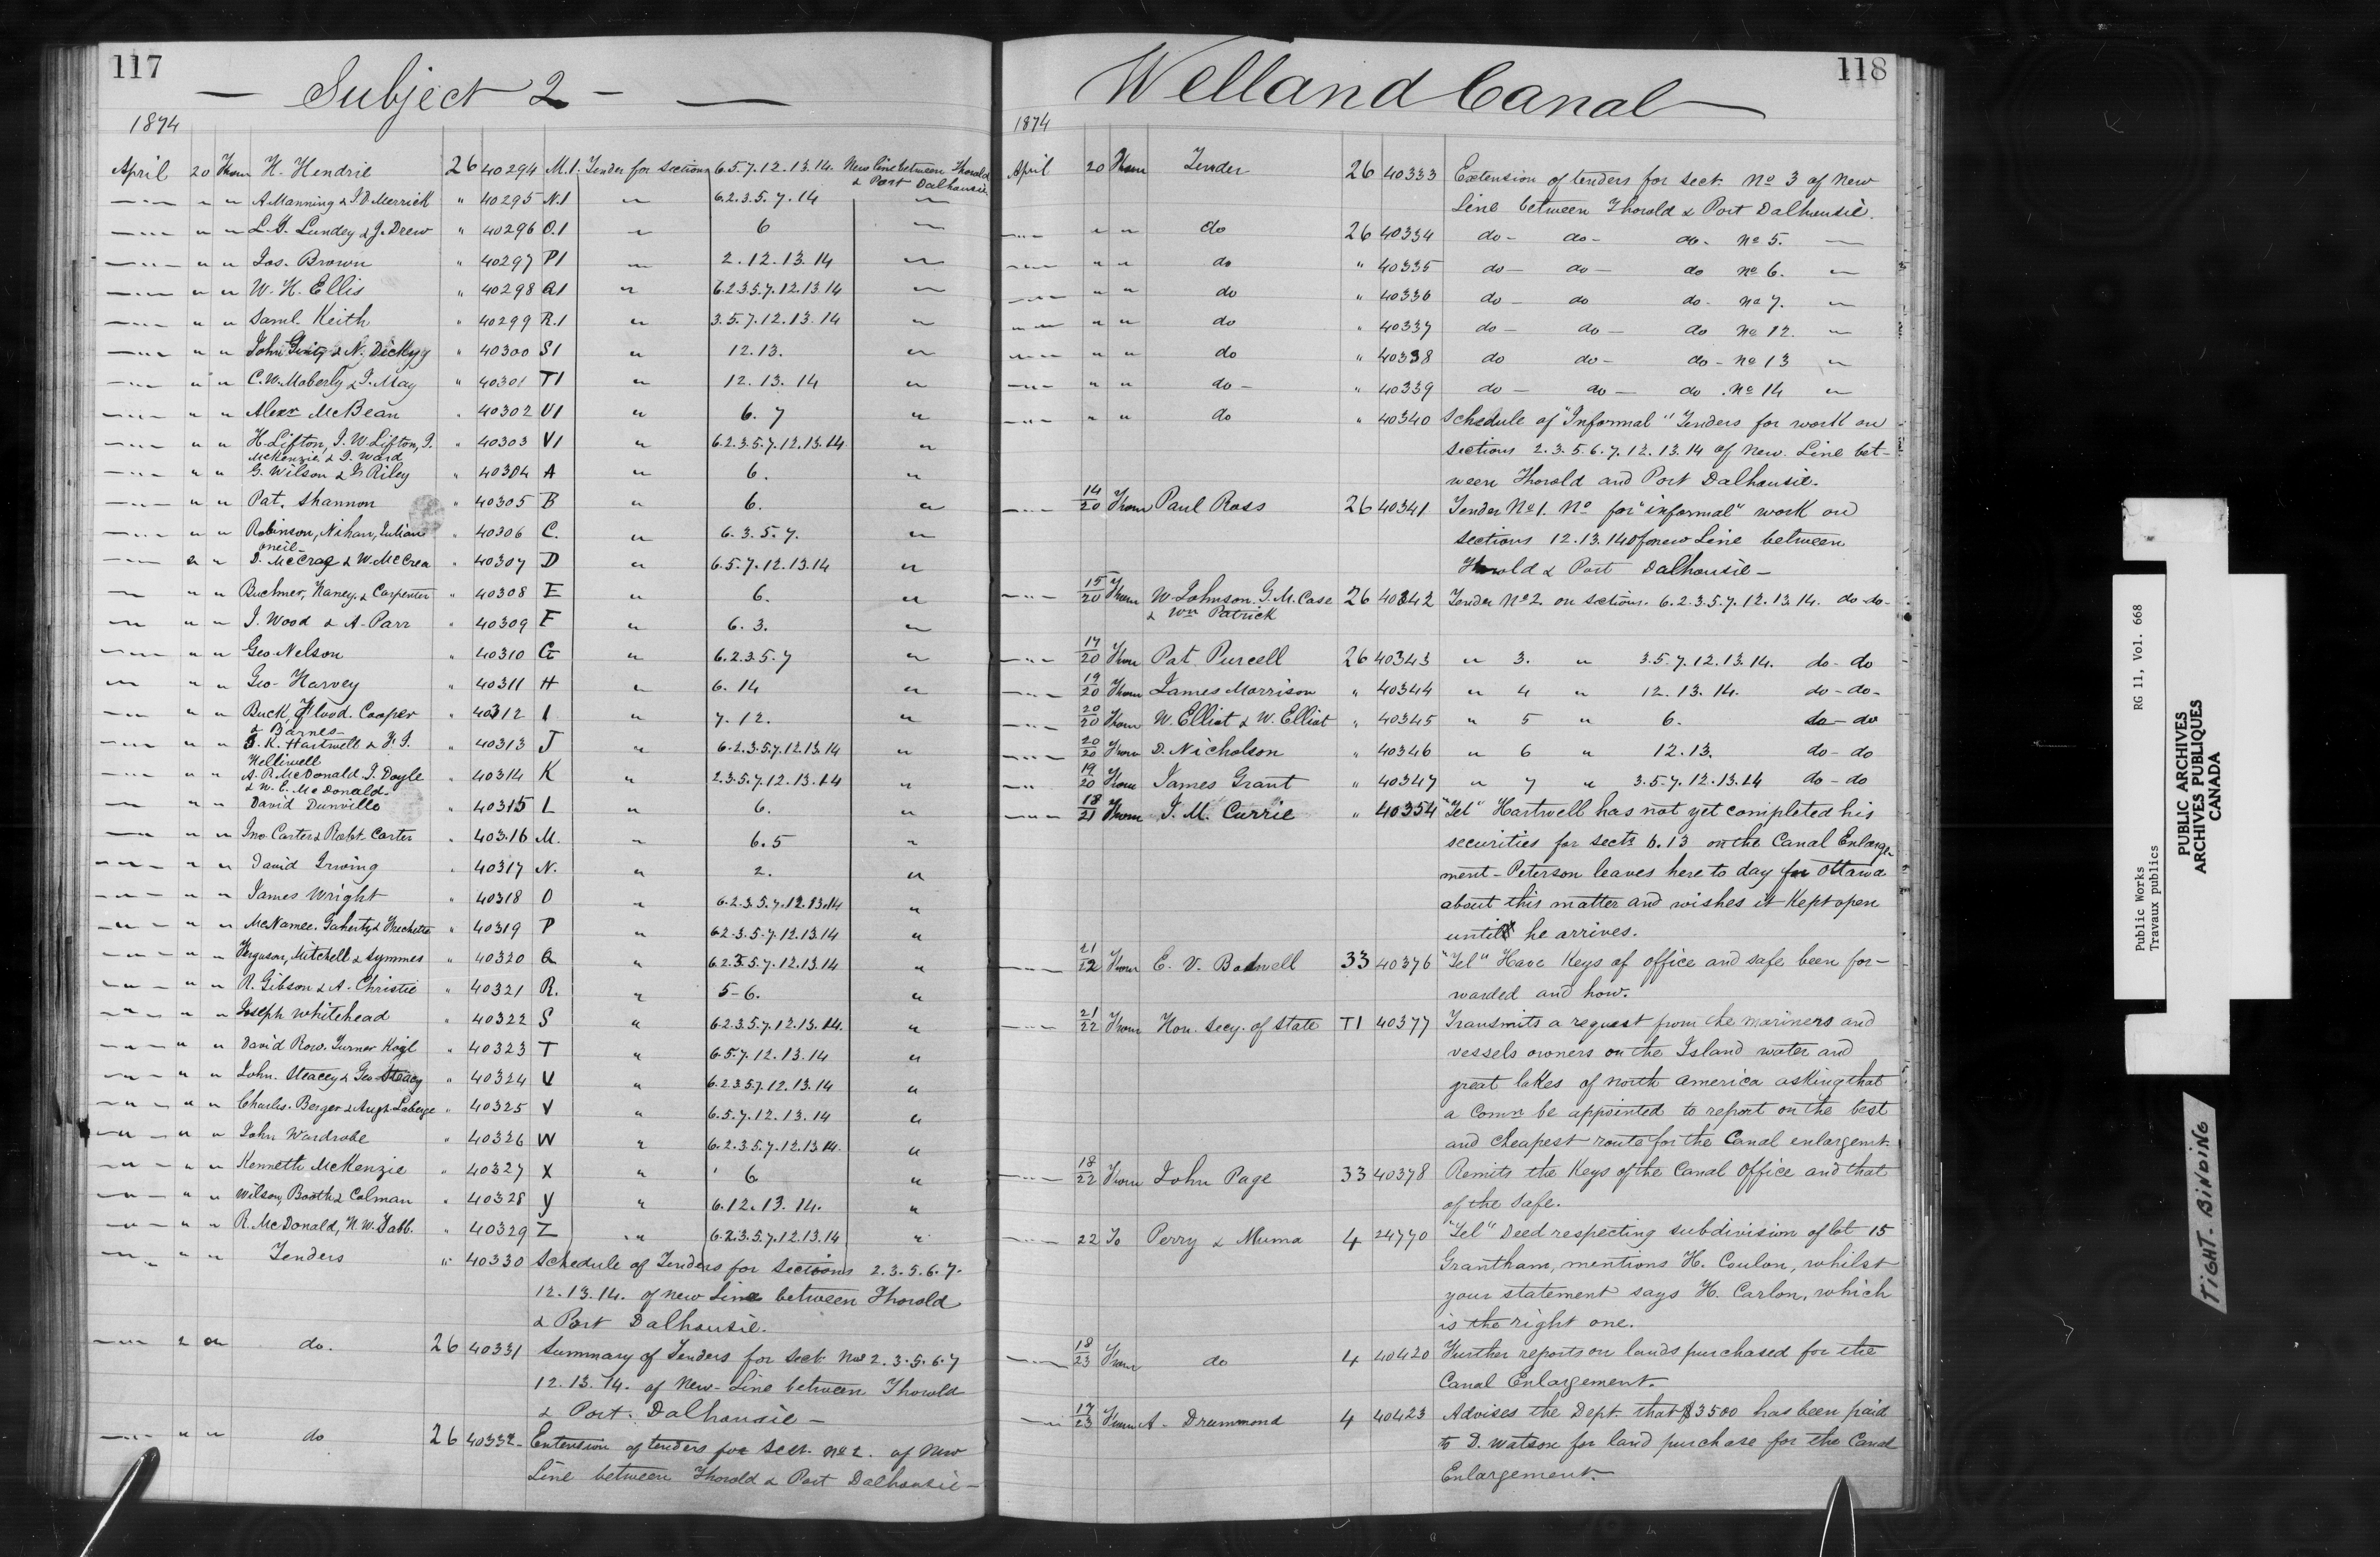 117
— Subject 2 — —
1874
April 20 From H. Hendrie 26 40294 M.1. Tender for sections 6.5.7.12.13.14. New line between Thorold
& Port Dalhousie
—"— " " A Manning & J.D. Merrick " 40295 N.1 " 6.2.3.5.7.14 "
—"— " " L.G. Lundey & J. Drew " 40296 O.1 " 6 "
—"— " " Jos. Brown " 40297 P1 " 2.12.13.14 "
—"— " " W. H. Ellis " 40298 Q1 " 6.2.3.5.7.12.13.14 "
—"— " " Saml. Keith " 40299 R.1 " 3.5.7.12.13.14 "
—"— " " John & N. " 40300 S1 " 12.13. "
—"— " " C.W. Moberly & J. May " 40301 T1 " 12.13.14 "
—"— " " Alexr McBean " 40302 U1 " 6.7 "
—"— " " H. Lifton, J.W. Lifton, J. " 40303 V1 " 6.2.3.5.7.12.13.14 "
McKenzie & J. Ward
—"— " " G. Wilson & Riley " 40304 A " 6. "
—"— " " Pat. Shannon " 40305 B " 6. "
—"— " " Robinson, Nihan, " 40306 C. " 6.3.5.7. "
oneil
—"— " " D. McCrae & W. McCrea " 40307 D " 6.5.7.12.13.14 "
—"— " " Buchner, Haney, & Carpenter " 40308 E " 6. "
—"— " " J. Wood & A. Parr " 40309 F " 6.3. "
—"— " " Geo Nelson " 40310 G " 6.2.3.5.7 "
—"— " " Geo. Harvey " 40311 H " 6.14 "
—"— " " Buck, Flood. Cooper " 40312 I " 7.12. "
& Barnes
—"— " " K. Hartwell & " 40313 J " 6.2.3.5.7.12.13.14 "
Helliwell
—"— " " A. P. McDonald. J. Doyle " 40314 K " 2.3.5.7.12.13.14 "
& W. E. McDonald
—"— " " David Dunville " 40315 L " 6. "
—"— " " Jno. Carter & Robt. Carter " 40316 M. " 6.5 "
—"— " " David Irwing " 40317 N. " 2. "
—"— " " James Wright " 40318 O " 6.2.3.5.7.12.13.14 "
—"— " " McNamee. Gaherty & Frechette " 40319 P " 6.2.3.5.7.12.13.14 "
—"— " " Ferguson, Mitchell & Symmes " 40320 Q " 6.2.3.5.7.12.13.14 "
—"— " " R. Gibson & A. Christie " 40321 R. " 5-6. "
—"— " " Joseph Whitehead " 40322 S " 6.2.3.5.7.12.13.14. "
—"— " " David Row. Turner " 40323 T " 6.5.7.12.13.14 "
—"— " " John. Steacey & Geo Steacy " 40324 U " 6.2.3.5.7.12.13.14 "
—"— " " Charles. Berger & Laberge " 40325 V " 6.5.7.12.13.14 "
—"— " " John Wardrobe " 40326 W " 6.2.3.5.7.12.13.14. "
—"— " " Kenneth McKenzie " 40327 X " 6 "
—"— " " Wilson, Booth & Colman " 40328 Y " 6.12.13.14. "
—"— " " R. McDonald, N.W. " 40329 Z " 6.2.3.5.7.12.13.14 "
—"— " " Tenders " 40330 Schedule of Tenders for Sections 2.3.5.6.7.
12.13.14. of new Line between Thorold
& Port Dalhousie.
—"— " " do. 26 40331 Summary of Tenders for Sect. Nos 2.3.5.6.7
12.13.14. of New Line between Thorold
& Port Dalhousie —
—"— " " do 26 40332 Extension of tenders for Sect. No 2. of New
Line between Thorold & Port Dalhousie —
Welland Canal
118
1874
April 20 From Tender 26 40333 Extension of tenders for Sect. No 3 of New
Line between Thorold & Port Dalhousie.
—"— " " do 26 40334 do- do- do- No 5. —
—"— " " do " 40335 do- do- do No 6. "
—"— " " do " 40336 do- do do- No 7. "
—"— " " do " 40337 do- do- do No 12. "
—"— " " do " 40338 do do- do- No 13 "
—"— " " do- " 40339 do- do- do. No 14 "
—"— " " do " 40340 Schedule of "Informal" Tenders for work on
sections 2.3.5.6.7.12.13.14 of New. Line bet-
ween Thorold and Port Dalhousie.
—"— 14/20 From Paul Ross 26 40341 Tender No 1. No for "informal" work on
sections 12.13.14 of new Line between
Thorold & Port Dalhousie —
—"— 15/20 From W. Johnson. G.M. Case 26 40342 Tender No 2. on sections. 6.2.3.5.7.12.13.14. do-do-
& Wm Patrick
—"— 17/20 From Pat. Purcell 26 40343 " 3. " 3.5.7.12.13.14. do-do
—"— 19/20 From James Morrison " 40344 " 4 " 12.13.14. do-do-
—"— 20/20 From W. Elliot & W. Elliot " 40345 " 5 " 6. do-do
—"— 20/20 From D. Nicholson " 40346 " 6 " 12.13. do-do
—"— 19/20 From James Grant " 40347 " 7 " 3.5.7.12.13.14 do-do
—"— 18/21 From J. M. Currie " 40354 "Tel" Hartwell has not yet completed his
securities for sects 6.13 on the Canal Enlarge-
ment - Peterson leaves here to day for Ottawa
about this matter and wishes it Kept open
until he arrives.
—"— 21/22 From E. V. Bodwell 33 40376 "Tel" Have Keys of office and safe been for-
warded and how.
—"— 21/22 From Hon. Secy. of State T1 40377 Transmits a request from the mariners and
vessels owners on the Island water and
great lakes of north america asking that
a Comn be appointed to report on the best
and cheapest route for the Canal enlargemt
—"— 18/22 From John Page 33 40378 Remits the Keys of the Canal Office and that
of the Safe.
—"— 22 To Perry & Muma 4 24770 "Tel" Deed respecting subdivision of lot 15
Grantham, mentions H. Coulon, whilst
your statement says H. Carlon, which
is the right one.
—"— 18/23 From do 4 40420 Further reports on lands purchased for the
Canal Enlargement.
—"— 17/23 From A. Drummond 4 40423 Advises the Dept. that $3500 has been paid
to D. Watson for land purchase for the Canal
Enlargement.
Public Works RG 11, Vol. 668
Travaux publics
PUBLIC ARCHIVES
ARCHIVES PUBLIQUES
CANADA
TIGHT - BINDING